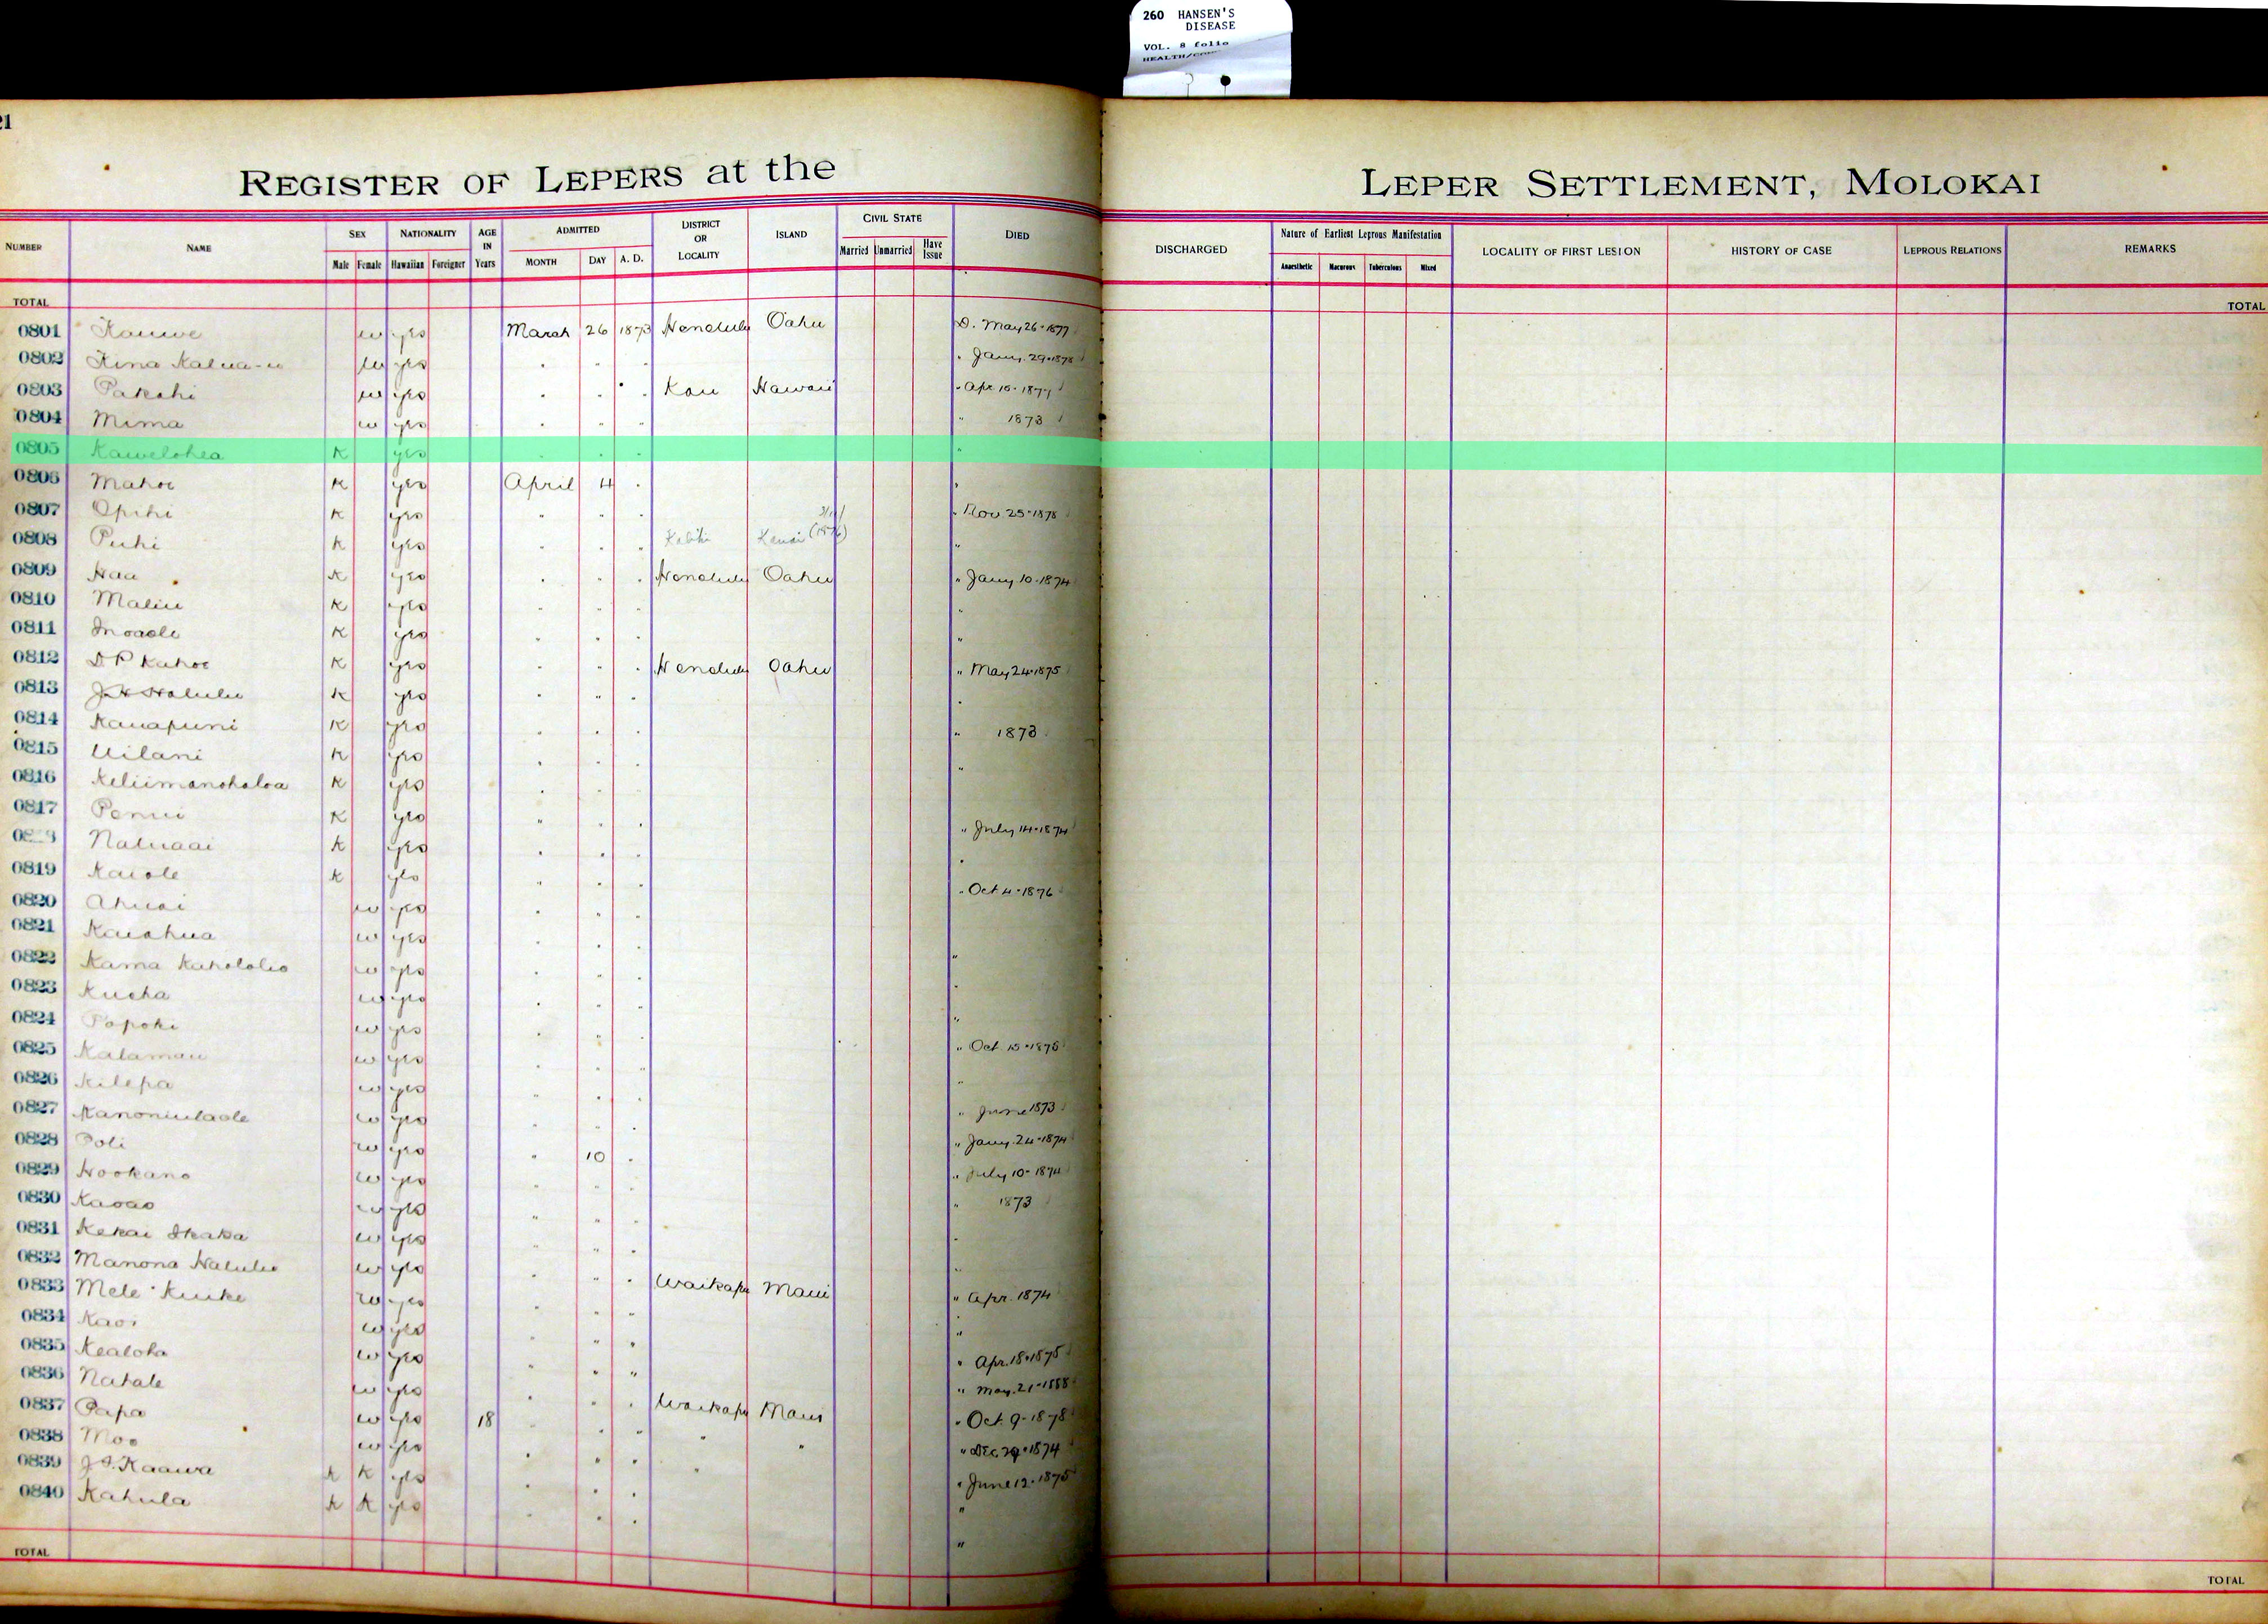 260 HANSEN'S
DISEASE
VOL. 8 folio
21
REGISTER OF LEPERS at the LEPER SETTLEMENT, MOLOKAI
NUMBER NAME SEX NATIONALITY AGE IN Years ADMITTED DISTRICT OR LOCALITY ISLAND CIVIL STATE DIED DISCHARGED Nature of Earliest Leprous Manifestation LOCALITY OF FIRST LESION HISTORY OF CASE LEPROUS RELATIONS REMARKS
Male Female Hawaiian Foreigner MONTH DAY A. D. Married Unmarried Have Issue Anaesthetic Macurous Tuberculous Mixed
TOTAL TOTAL
0801 Kauwe w yes March 26 1873 Honolulu Oahu D. May 26-1877
0802 Kina Kalua-u w yes " " " " Jany. 29-1878
0803 Pakahi w yes " " " Kau Hawaii " Apr 10-1877
0804 Mima w yes " " " " 1873
0805 Kawelohea K yes " " " "
0806 Mahoe K yes April 4 " "
0807 Opihi K yes " " " " Nov 25-1878
0808 Puhi K yes " " " Kauai "
0809 Haa K yes " " " Honolulu Oahu " Jany 10-1874
0810 Maliu K yes " " " "
0811 K yes " " " "
0812 D P Kahoe K yes " " " Honolulu Oahu " May 24-1875
0813 Halulu K yes " " " "
0814 Kauapuni K yes " " " " 1873
0815 Uilani K yes " " " "
0816 Keliimanohaloa K yes " " "
0817 K yes " " " " July 14-1874
Naluaai K yes " " " "
0819 Kaiole K yes " " " " Oct 4-1876
0820 Ahuai w yes " " "
0821 Kaiahua w yes " " " "
0822 Kama Kahololio w yes " " " "
0823 Kueha w yes " " " "
0824 Popoki w yes " " "
0825 Kalamau w yes " " " " Oct. 15-1878
0826 Kilepa w yes " " " "
0827 Kanoniulaole w yes " " " " June 1873
0828 Poli w yes " 10 " " Jany. 24-1874
0829 Hookano w yes " " " " July 10-1874
0830 Kaoao w yes " " " " 1873
0831 Kekai Ikaka w yes " " " "
0832 Manona Halulu w yes " " " Waikapu Maui "
0833 Mele Kuike w yes " " " " Apr. 1874
0834 Kaoi w yes " " " "
0835 Kealoha w yes " " " " Apr. 18-1875
0836 Nahale w yes " " " Waikapu Maui " May. 21-1888
0837 Papa w yes 18 " " " " " " Oct. 9-1878
0838 Moo w yes " " " " " Dec 29-1874
0839 Kaawa K K yes " " " " June 12-1875
0840 Kahula K K yes " " " "
TOTAL TOTAL